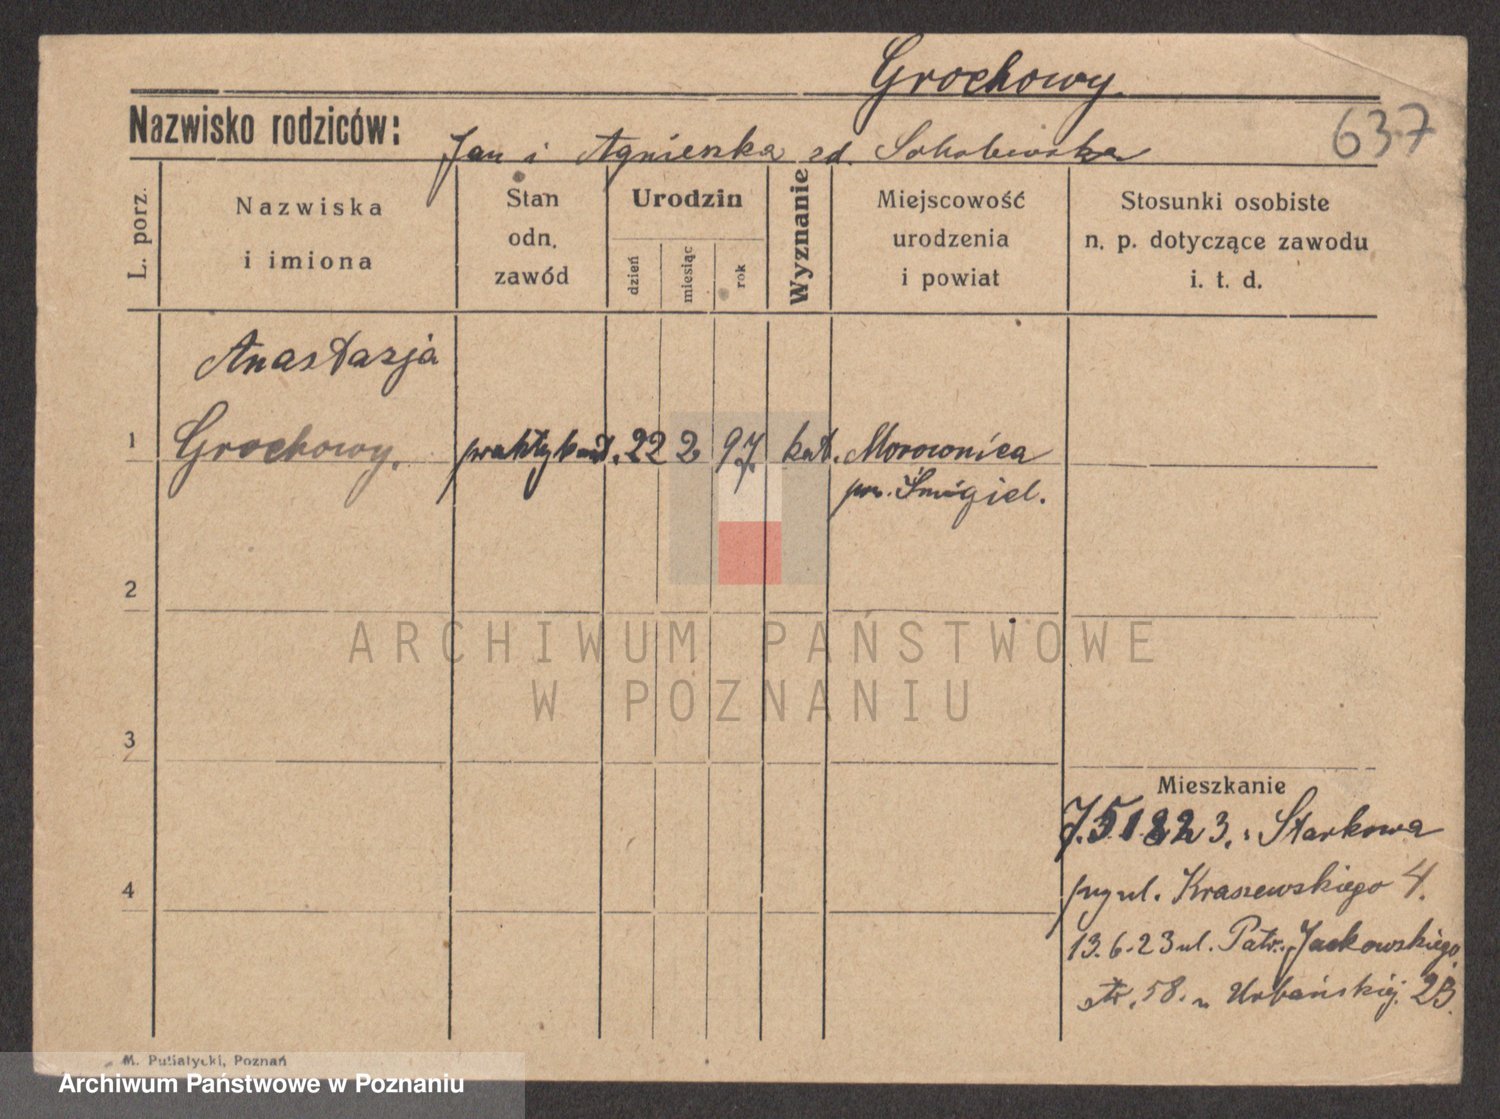 Grochowy.
637
Nazwisko rodziców:
Jan i Agnieszka
L. porz.
Nazwiska
i imiona
Stan
odn.
zawód
Urodzin
dzień
miesiąc
rok
Wyznanie
Miejscowość
urodzenia
i powiat
Stosunki osobiste
n. p. dotyczące zawodu
i. t. d.
Anastazja
1 Grochowy. praktykant. 22 2 97. kat. Morownica
pow. Śmigiel.
2
ARCHIWUM PAŃSTWOWE
W POZNANIU
3
Mieszkanie
23. Starkowa
ul. Kraszewskiego 4.
4
13.6.23 ul. Patr. Jackowskiego
str. 58. u Urbańskiej. 23.
M. Putiatycki, Poznań
Archiwum Państwowe w Poznaniu